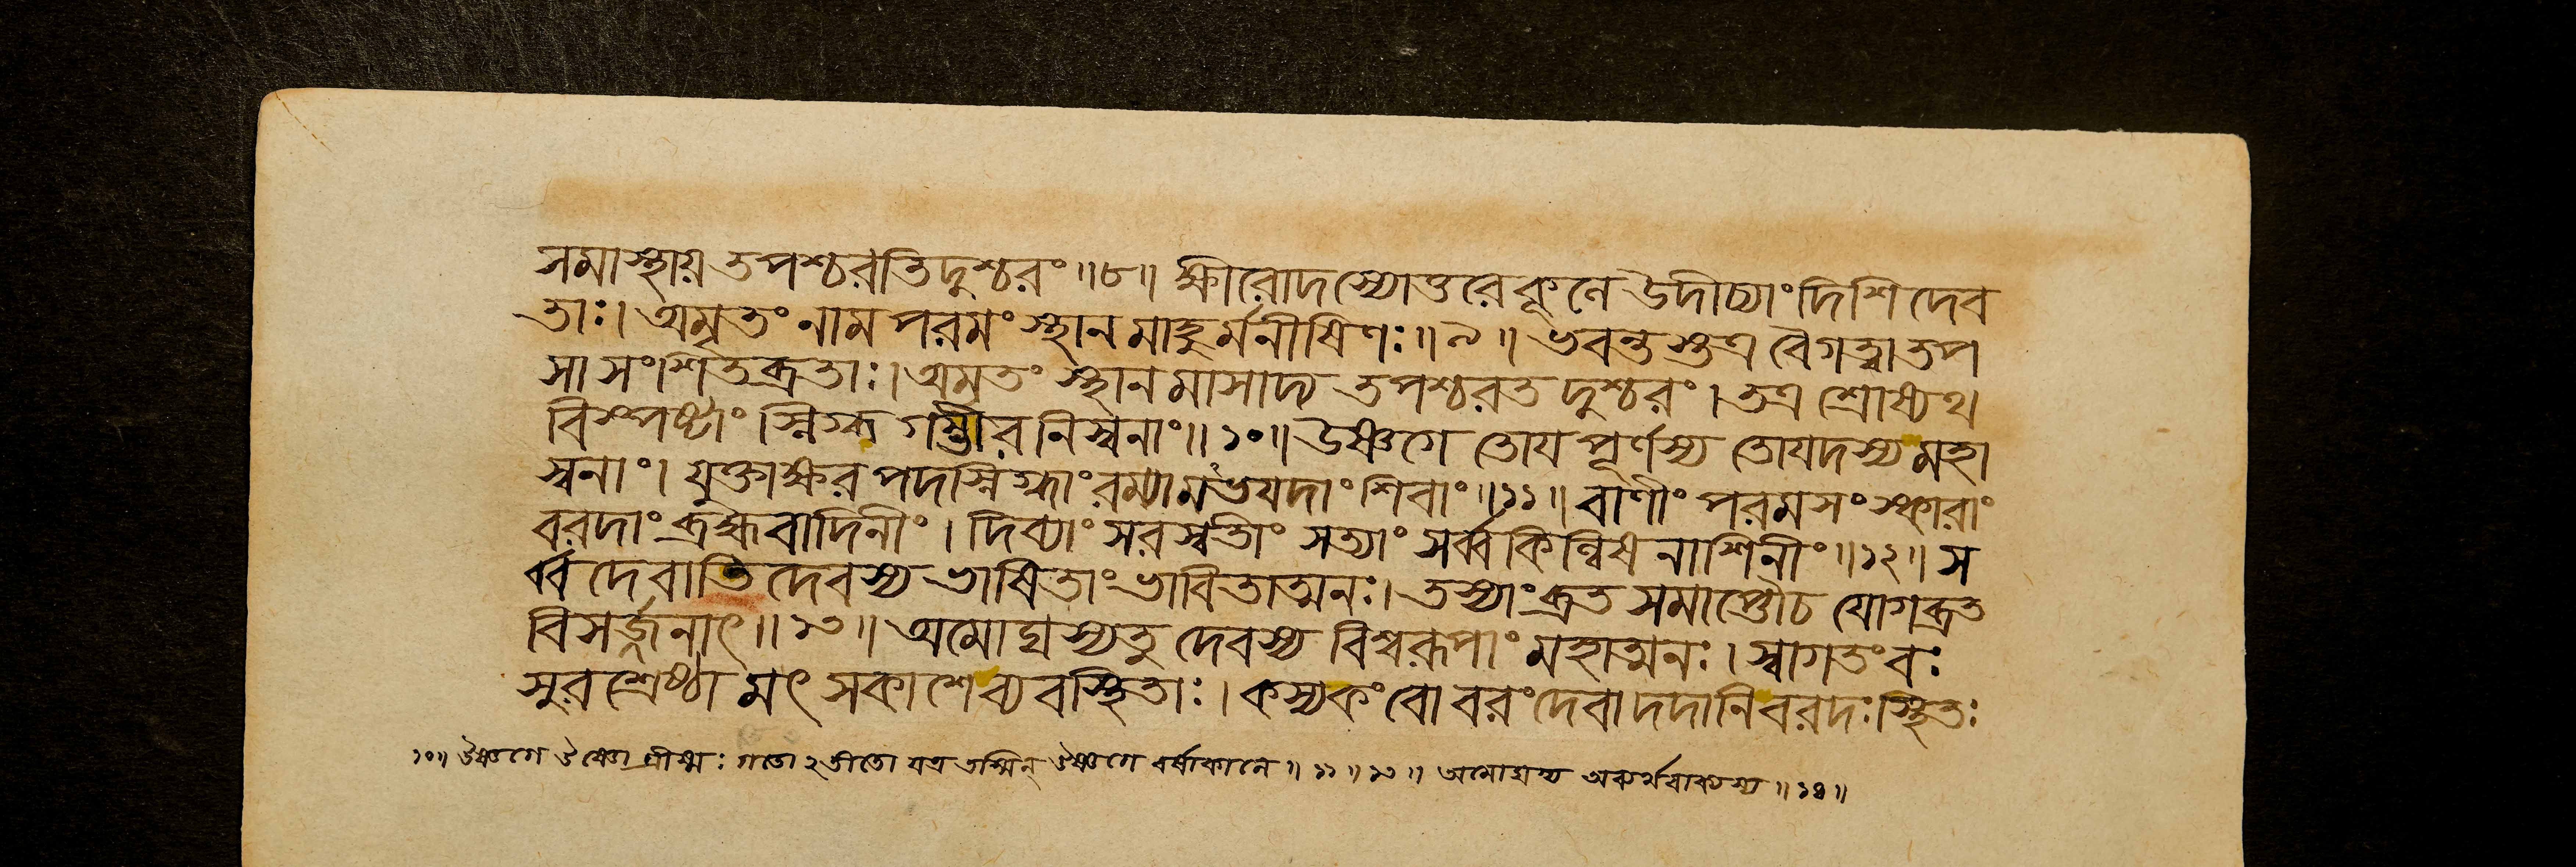 সমাস্থায় তপশ্চরতিদুশ্চরং॥৮॥ ক্ষীরোদস্যোত্তরেকূলে উদীচ্যাংদিশি দেব
তাঃ। অমৃতং নাম পরমং স্থান মাহুর্মনীষিণঃ॥৯॥ ভবন্তস্তত্র বৈগত্বা তপ
সা সংশিতব্রতাঃ। অমৃতং স্থান মাসাদ্য তপশ্চরত দুশ্চরং। তত্র শ্রোষ্যথ
বিস্পষ্টাং স্নিগ্ধ গম্ভীর নিস্বনাং॥১০॥ উষ্ণগে তোয পূর্ণস্য তোযদস্য মহা
স্বনাং। যুক্তাক্ষর পদস্নিগ্ধাং রম্যামভযদাং শিবাং॥১১॥ বাণীং পরমসংস্কারাং
বরদাং ব্রহ্মবাদিনীং। দিব্যাং সরস্বতীং সত্যাং সর্ব্বকিল্বিষ নাশিনীং॥১২॥ স
র্ব্ব দেবাতি দেবস্য ভাষিতাং ভাবিতাত্মনঃ। তস্যাংব্রত সমাপ্তৌচ যোগব্রত
বিসর্জ্জনাৎ॥১৩॥ অমোঘস্যতু দেবস্য বিশ্বরূপাং মহাত্মনঃ। স্বাগতংবঃ
সুরশ্রেষ্ঠা মৎ সকাশেব্যবস্থিতাঃ। কস্যকং বো বরংদেবা দদানিবরদঃস্থিতঃ
১০॥ উষ্ণগে উষ্ণো গ্রীষ্মঃ গতো২তীতো যত্র তস্মিন্ উষ্ণগে বর্ষাকালে॥১১॥১৩॥ অমোঘস্য অব্যর্থবাক্যস্য॥১৪॥